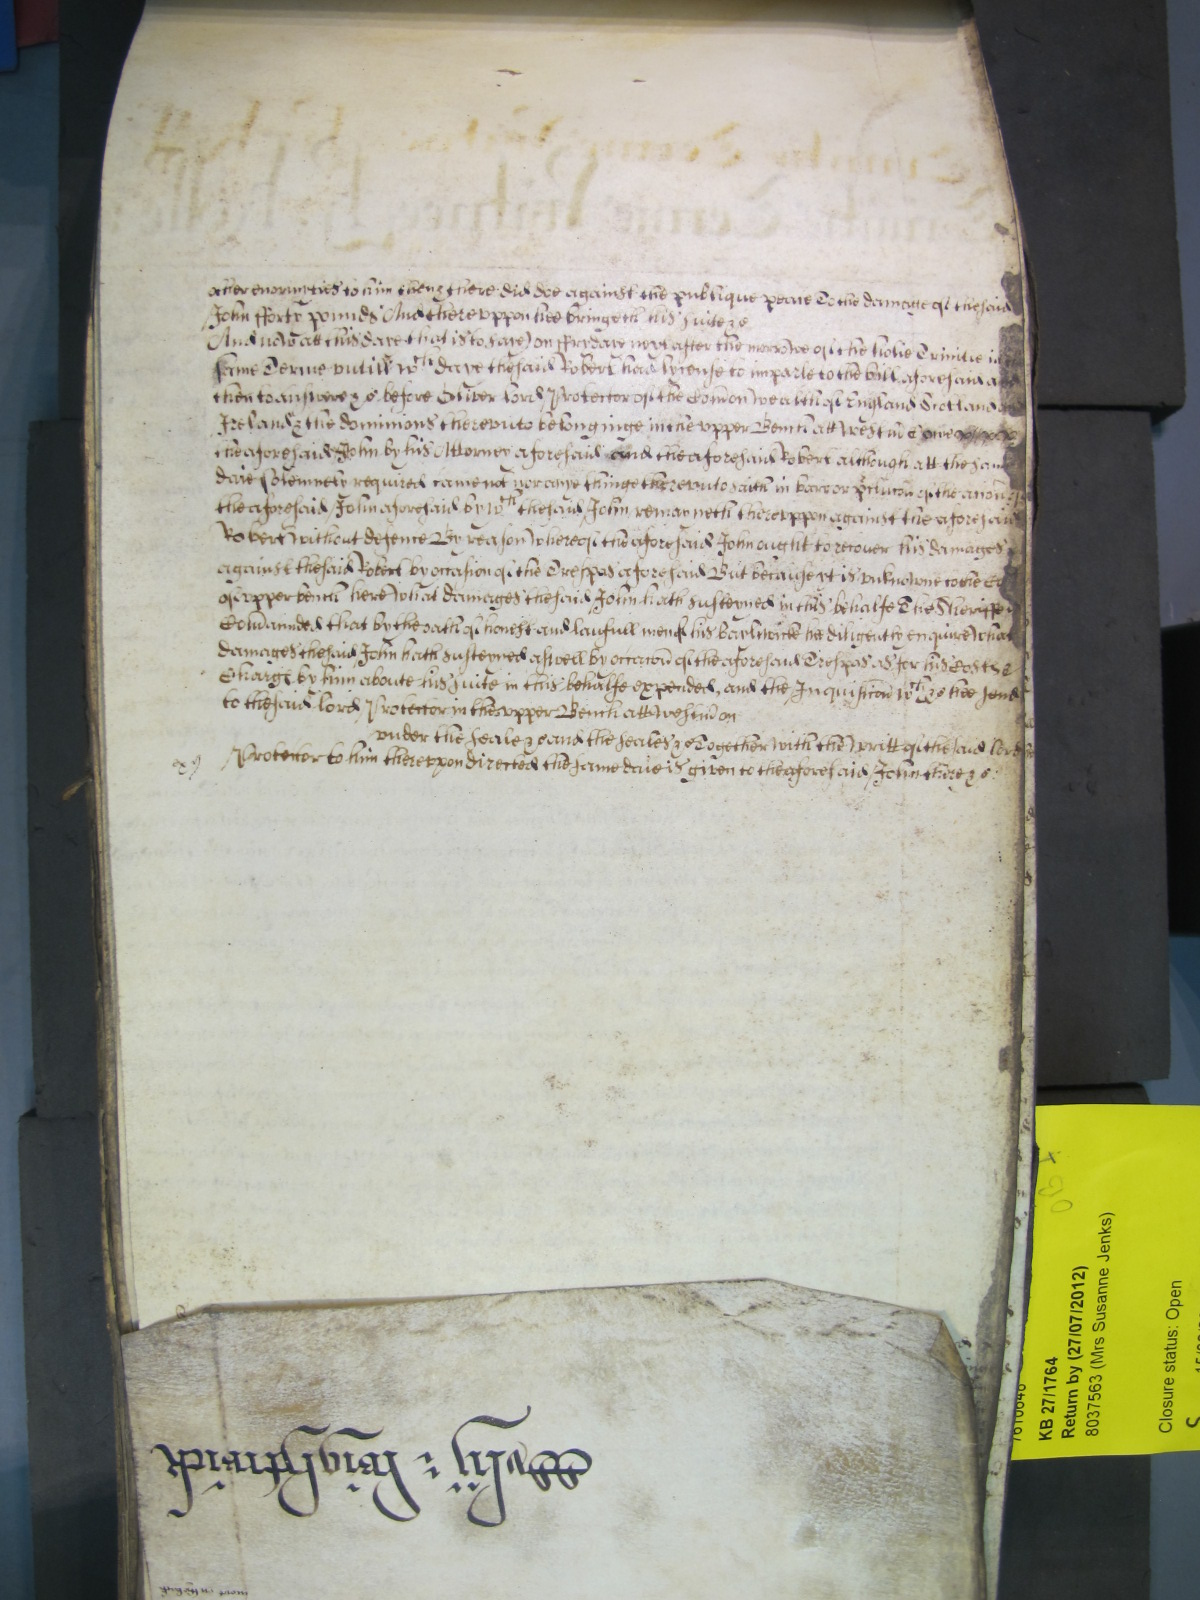 other enormities to him then & there did doe against the publique peace To the damage of the said
John fforty pounds And thereuppon hee bringeth his suite &c
And now att this daie that is to saie on ffrydaie next after the morrowe of the holie Trinitie in
same Terme untill wch daye the said Robert had lycense to imparle to the bill aforesaid and
then to answere &c before Oliver lord Protector of the Comon wealth of England Scotland
Ireland & the dominions thereunto belonginge in the upper Bench att Westm Come
the aforesaid John by his Attorney aforesaid and the aforesaid Robert although att the same
daie solemnely required came not nor anie thinge thereunto saith in barr or of the accion of
the aforesaid John aforesaid by wch the said John remayneth thereuppon against the aforesaid
Robert without defence By reason whereof the aforesaid John ought to recover his damages
against the said Robert by occasion of the Trespas aforesaid But because it is unknowne to the
of upper bench here what damages the said John hath susteyned in this behalfe The Sheriffe
Comaunded that by the oath of honest and lawfull men of his bayliwicke he diligently enquire what
damages the said John hath susteyned aswell by occasion of the aforesaid Trespas as for his Costs &
Charge by him aboute his suite in this behalfe expended, and the Inquisicon wch &c hee send
to the said lord Protector in the upper Bench att Westm on
under the seale &c and the seales &c Together with the writt of the said lord
Protector to him thereupon directed the same daie is given to the aforesaid John there &c
KB 27/1764
Return by (27/07/2012)
8037563 (Mrs Susanne Jenks)
Closure status: Open